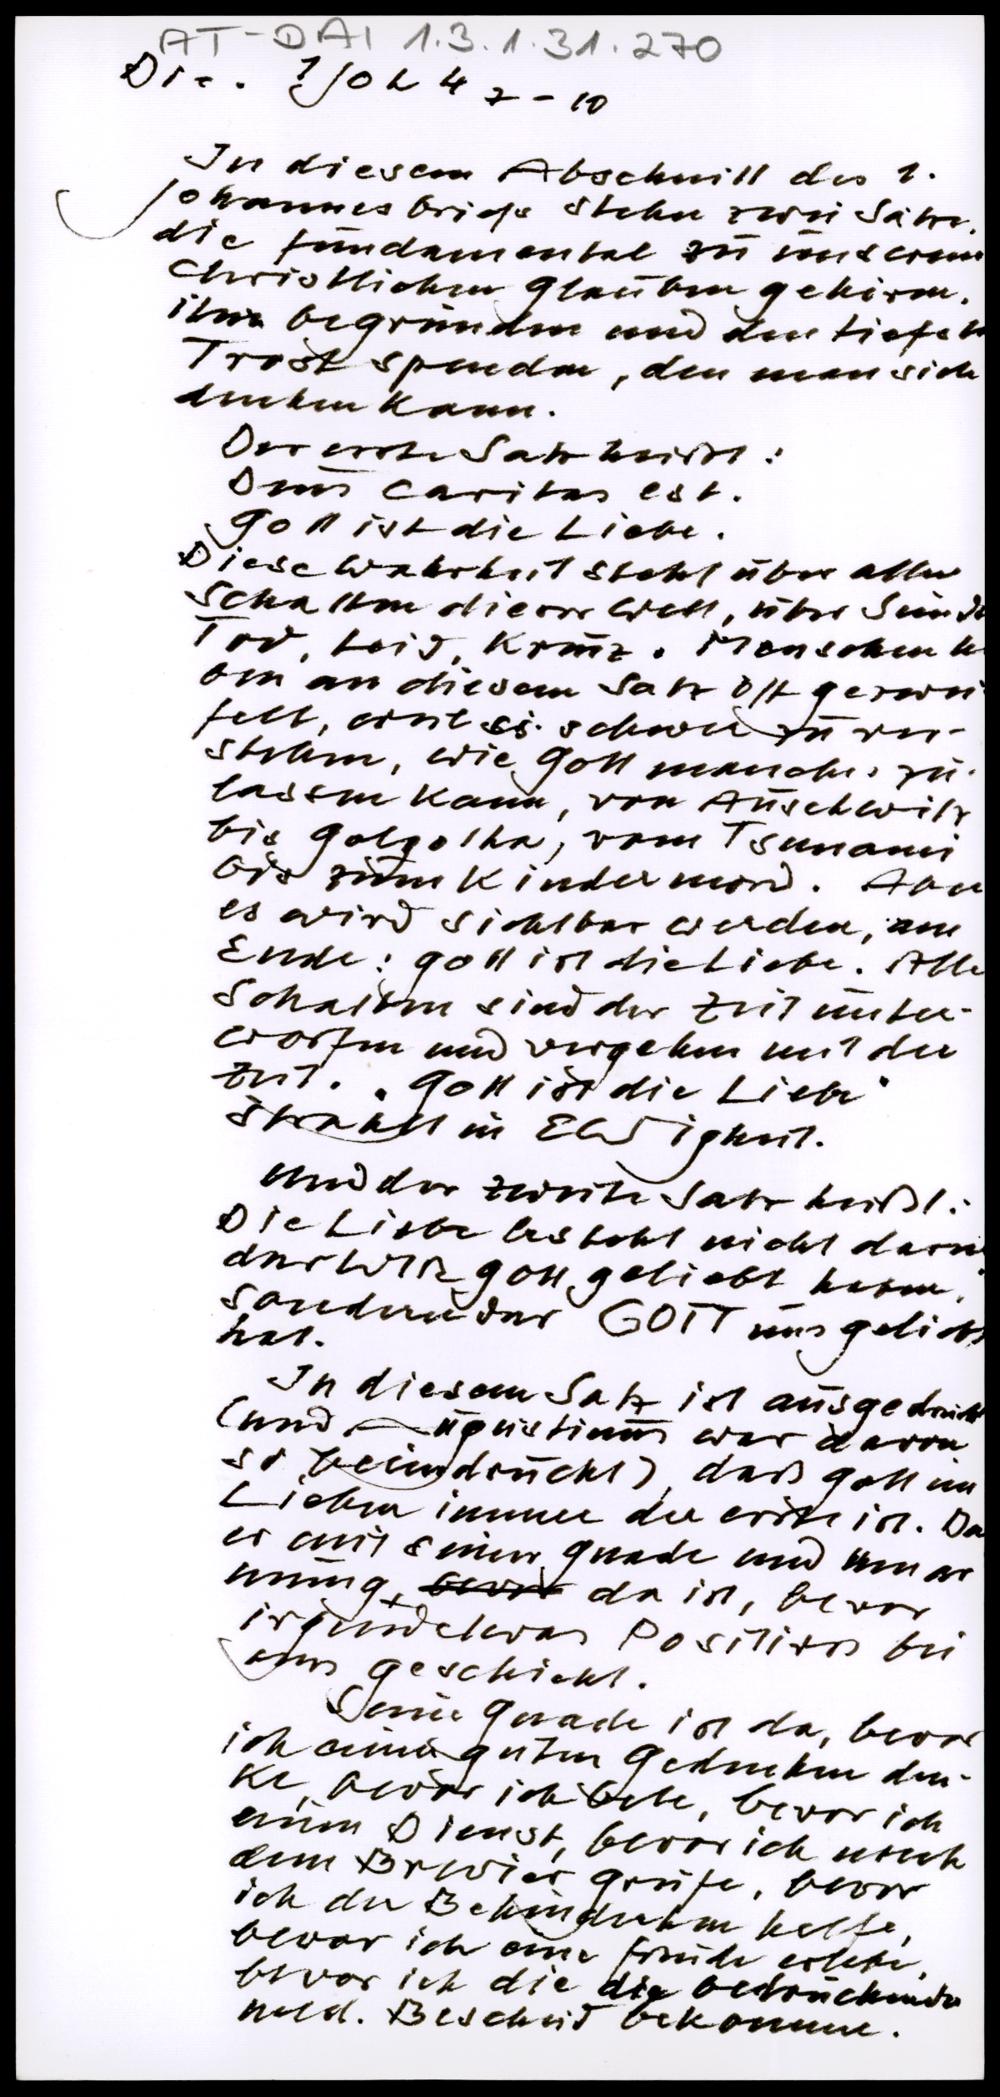 AT-DAI 1.3.1.31.270
Die. 1 Joh 4 7-10
In diesem Abschnitt des 1.
Johannesbriefs stehn zwei Sätze.
die fundamental zu unserem
Christlichen Glauben gehören.
ihn begründen und den tiefsten
Trost spenden, den man sich
denken kann.
Der erste Satz heißt:
Deus Caritas est.
Gott ist die Liebe.
Diese Wahrheit steht über allen
Schatten dieser Welt, über Sünde
Tod, Leid, Kreuz. Menschen h
ben an diesem Satz oft gezwei
felt, weil es schwer zu ver-
stehen, wie Gott manches zu-
lassen kann, von Auschwitz
bis Golgotha, vom Tsunami
bis zum Kindermord. Aber
es wird sichtbar werden, am
Ende: Gott ist die Liebe. Alle
Schatten sind der Zeit unter-
worfen und vergehen mit der
Zeit. "Gott ist die Liebe"
strahlt in EWigkeit.
Und der zweite Satz heißt:
Die Liebe besteht nicht darin
daß WIR Gott geliebt haben,
sondern daß GOTT uns geliebt
hat.
In diesem Satz ist ausgedrückt
(und Augustinus war davon
so beeindruckt), daß Gott im
Lieben immer der erste ist. Da
er mit seiner Gnade und Umar
mung da ist, bevor
irgendetwas Positives bei
uns geschieht.
Seine Gnade ist da, bevor
ich einen guten Gedanken den-
ke, bevor ich bete, bevor ich
einen Dienst, bevor ich nach
dem Brevier greife, bevor
ich der Behinderten helfe,
bevor ich eine Freude erlebe,
bevor ich die die bedrückende
meld. Bescheid bekomme.